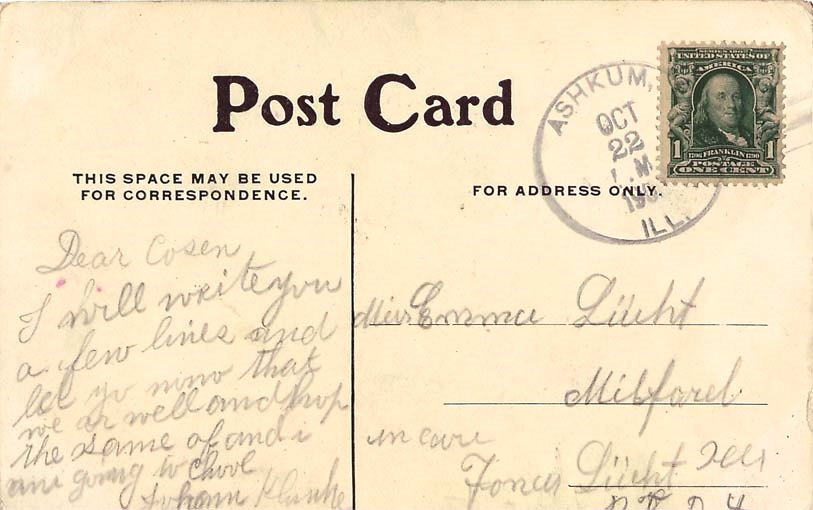 Post Card
THIS SPACE MAY BE USED
FOR CORRESPONDENCE.
FOR ADDRESS ONLY.
ASHKUM,
OCT
22
ILL.
SERIES 1902
UNITED STATES OF
AMERICA
1 1706 FRANKLIN 1790 1
POSTAGE
ONE CENT
Dear Cosen
I will write you
a few lines and
let yo now that
we ar well and hop
the same of and i
am going to
chool
Miss Emma Lücht
Milford
in care
Lücht